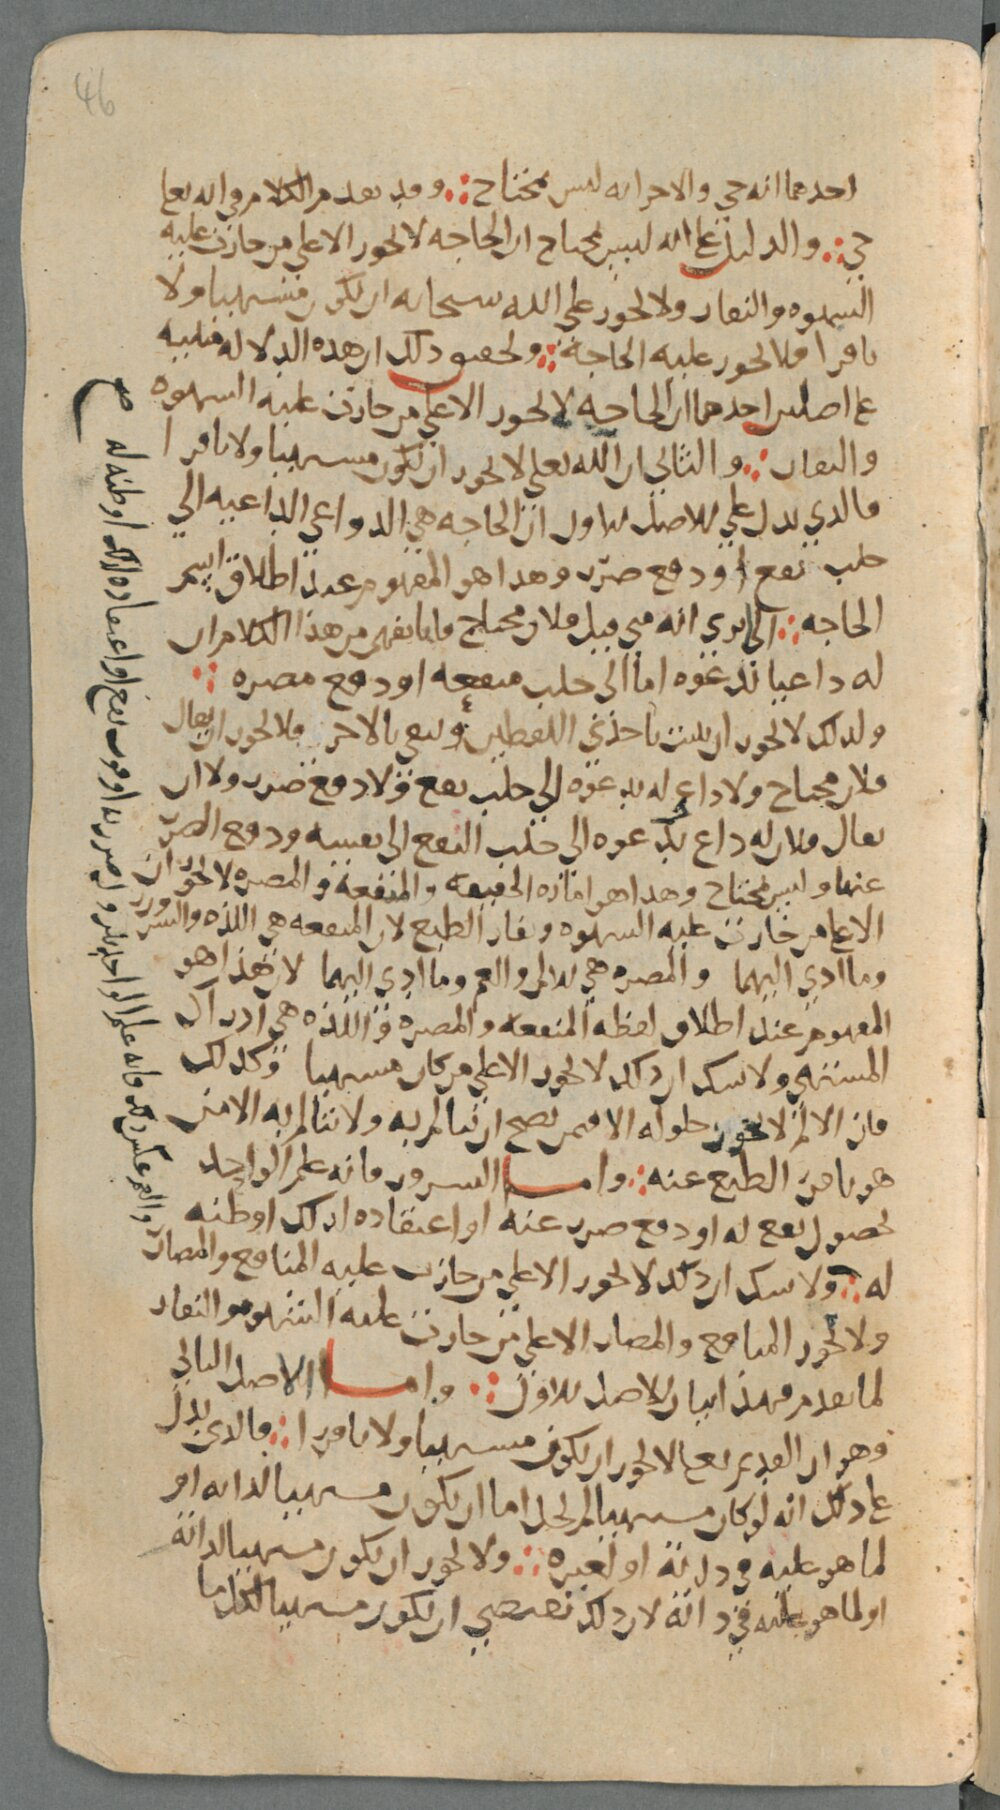 46
احدهما انه حي والاخر انه ليس بمحتاج ∴ وقد تقدم الكلام في انه تعا
حي ∴ والدليل على انه ليس بمحتاج ان الحاجه لا تجوز الا على من جازت عليه
الشهوه والنفار ولا تجوز على الله سبحانه ان يكون مشتهيا ولا
نافرا فلا تجوز عليه الحاجة ∴ وتحقيق ذلك ان هذه الدلاله مبنيه
على اصلين احدهما ان الحاجه لا تجوز الا على من جازت عليه الشهوه
والنفار ∴ والثاني ان الله تعلى لا يجوز ان يكون مشتهيا ولا نافرا
فالذي يدل على الاصل الاول ان الحاجه هي الدواعي الداعيه الى
جلب نفع او دفع ضرر وهذا هو المفهوم عند اطلاق اسم
الحاجه ∴ الا ترى انه متى قيل فلان محتاج فانا نفهم من هذا الكلام ان
له داعيا تدعوه اما الى جلب منفعه او دفع مضره ∴
ولذلك لا يجوز ان يثبت باحدى اللفظين وينفي بالاخر فلا يجوز ان يقال
فلان محتاج ولا داع له يدعوه الى جلب نفع ولا دفع ضرر ولا ان
يقال فلان له داع يدعوه الى جلب النفع الى نفسه ودفع الضرر
عنها وليس بمحتاج وهذا هو امارة الحقيقه والمنفعة والمضره لا تجوزان
الا على من جازت عليه الشهوه ونفار الطبع لان المنفعه هي اللذه والسرور
وما ادى اليهما والمضره هي الالم والغم وما ادى اليهما لان هذا هو
المفهوم عند اطلاق لفظه المنفعه والمضره واللذه هي ادراك
المشتهي ولا شك ان ذلك لا يجوز الا على من كان مشتهيا وكذلك
فان الالم لا يجوز حلوله الا فيمن يصح ان يتالم به ولا يتالم به الا من
هو نافر الطبع عنه ∴ واما السرور فانه علم الواحد
بحصول نفع له او دفع ضرر عنه او اعتقاده لذلك او ظنه
له ∴ ولا شك ان ذلك لا يجوز الا على من جازت عليه المنافع والمضار
ولا تجوز المنافع والمضار الا على من جازت عليه الشهوه والنفار
لما تقدم فهذا بيان الاصل الاول ∴ واما الاصل الثاني
وهو ان القديم تعالى لا يجوز ان يكون مشتهيا ولا نافرا ∴ فالذي يدل
على ذلك انه لو كان مشتهيا لم يخل اما ان يكون مشتهيا لذاته او
لما هو عليه في ذاته او لغيره ∴ ولا يجوز ان يكون مشتهيا لذاته
او لما هو عليه في ذاته لان ذلك يقتضي ان يكون مشتهيا لكل ما
والغم عكس ذلك فانه علم الواحد بنزول ضرر به او فوت نفع او اعتقاده لذلك او ظنه له